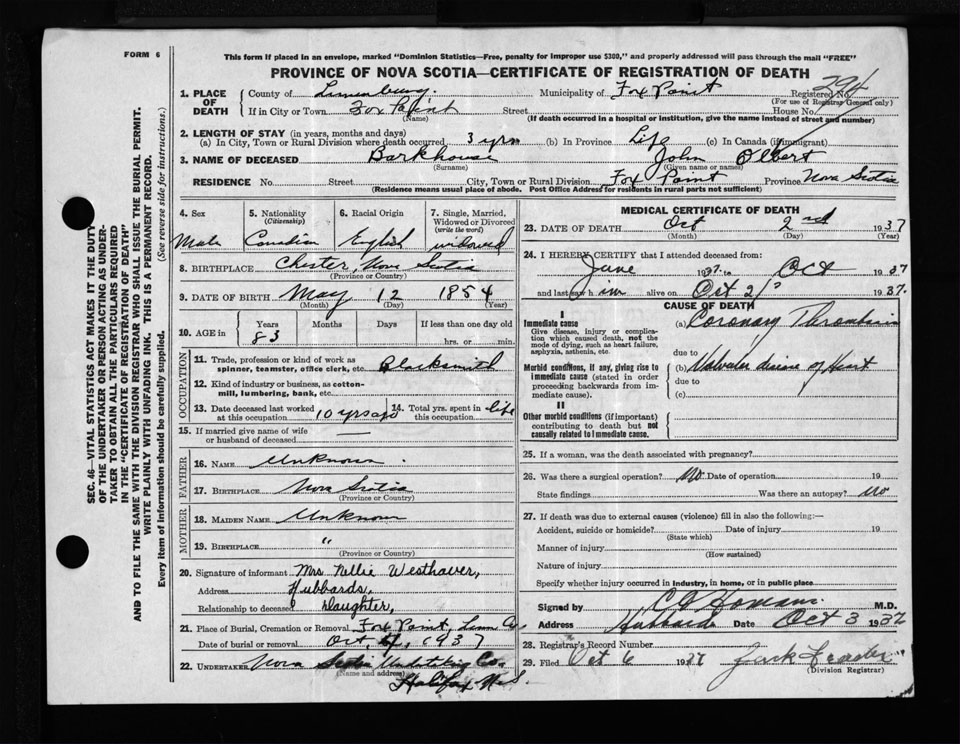 FORM 6
This form if placed in an envelope, marked "Dominion Statistics—Free, penalty for improper use $300," and properly addressed will pass through the mail "FREE"
PROVINCE OF NOVA SCOTIA—CERTIFICATE OF REGISTRATION OF DEATH
SEC. 46—VITAL STATISTICS ACT MAKES IT THE DUTY
OF THE UNDERTAKER OR PERSON ACTING AS UNDER-
TAKER TO OBTAIN ALL THE PARTICULARS REQUIRED
IN THE "CERTIFICATE OF REGISTRATION OF DEATH"
AND TO FILE THE SAME WITH THE DIVISION REGISTRAR WHO SHALL ISSUE THE BURIAL PERMIT.
WRITE PLAINLY WITH UNFADING INK. THIS IS A PERMANENT RECORD.
Every item of information should be carefully supplied. (See reverse side for instructions.)
1. PLACE OF DEATH County of Lunenburg. Municipality of Fox Point Registered No. 794
(For use of Registrar General only)
If in City or Town Fox Point Street House No.
(Name) (If death occurred in a hospital or institution, give the name instead of street and number)
2. LENGTH OF STAY (in years, months and days)
(a) In City, Town or Rural Division where death occurred 3 yrs (b) In Province Life (c) In Canada (if immigrant)
3. NAME OF DECEASED Barkhouse John Olbert
(Surname) (Given name or names)
RESIDENCE No. Street City, Town or Rural Division Fox Point Province Nova Scotia
(Residence means usual place of abode. Post Office Address for residents in rural parts not sufficient)
4. Sex 5. Nationality (Citizenship) 6. Racial Origin 7. Single, Married, Widowed or Divorced (write the word)
Male Canadian English widowed
8. BIRTHPLACE Chester, Nova Scotia
(Province or Country)
9. DATE OF BIRTH May 12 1854
(Month) (Day) (Year)
10. AGE in Years Months Days If less than one day
83 hrs. or min.
OCCUPATION
11. Trade, profession or kind of work as spinner, teamster, office clerk, etc. Blacksmith
12. Kind of industry or business, as cotton-mill, lumbering, bank, etc.
13. Date deceased last worked at this occupation 10 yrs ago 14. Total yrs. spent in this occupation life
15. If married give name of wife or husband of deceased —
FATHER
16. NAME Unknown.
17. BIRTHPLACE Nova Scotia
(Province or Country)
MOTHER
18. MAIDEN NAME Unknown
19. BIRTHPLACE "
(Province or Country)
20. Signature of informant Mrs Nellie Westhaver,
Address Hubbards,
Relationship to deceased daughter,
21. Place of Burial, Cremation or Removal Fox Point, Lunn Co.
Date of burial or removal Oct. 4, 1937
22. UNDERTAKER Nova Scotia Undertaking Co.
(Name and address)
Halifax N.S.
MEDICAL CERTIFICATE OF DEATH
23. DATE OF DEATH Oct 2nd 1937
(Month) (Day) (Year)
24. I HEREBY CERTIFY that I attended deceased from:
June 1937 to Oct 1937
and last saw him alive on Oct 2 1937.
CAUSE OF DEATH
I
Immediate cause (a) Coronary Thrombosis
Give disease, injury or complication which caused death, not the mode of dying, such as heart failure, asphyxia, asthenia, etc.
due to
Morbid conditions, if any, giving rise to immediate cause (stated in order proceeding backwards from immediate cause).
(b) Valvular disease of Heart
due to
(c)
II
Other morbid conditions (if important) contributing to death but not causally related to immediate cause.
25. If a woman, was the death associated with pregnancy?
26. Was there a surgical operation? no Date of operation 19
State findings Was there an autopsy? no
27. If death was due to external causes (violence) fill in also the following:—
Accident, suicide or homicide? Date of injury 19
(State which)
Manner of injury
(How sustained)
Nature of injury
Specify whether injury occurred in industry, in home, or in public place
Signed by M.D.
Address Hubbards Date Oct 3 1937
28. Registrar's Record Number
29. Filed Oct 6 1937 Jack
(Division Registrar)